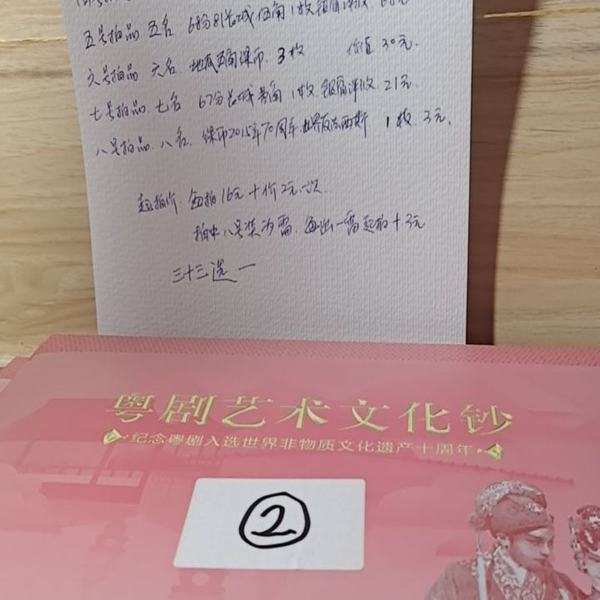 五号拍品 五名 68分81长城伍角1枚
六号拍品 六名 3枚 价值30元.
七号拍品 七名 67分长城壹角1枚 21元
八号拍品 八名. 2015年70周年 1枚 3元.
起拍价 每拍16元+价2元一次
拍中八号奖为雷. 每出一雷起拍+3元
三十三选一
粤剧艺术文化钞
纪念粤剧入选世界非物质文化遗产十周年
2